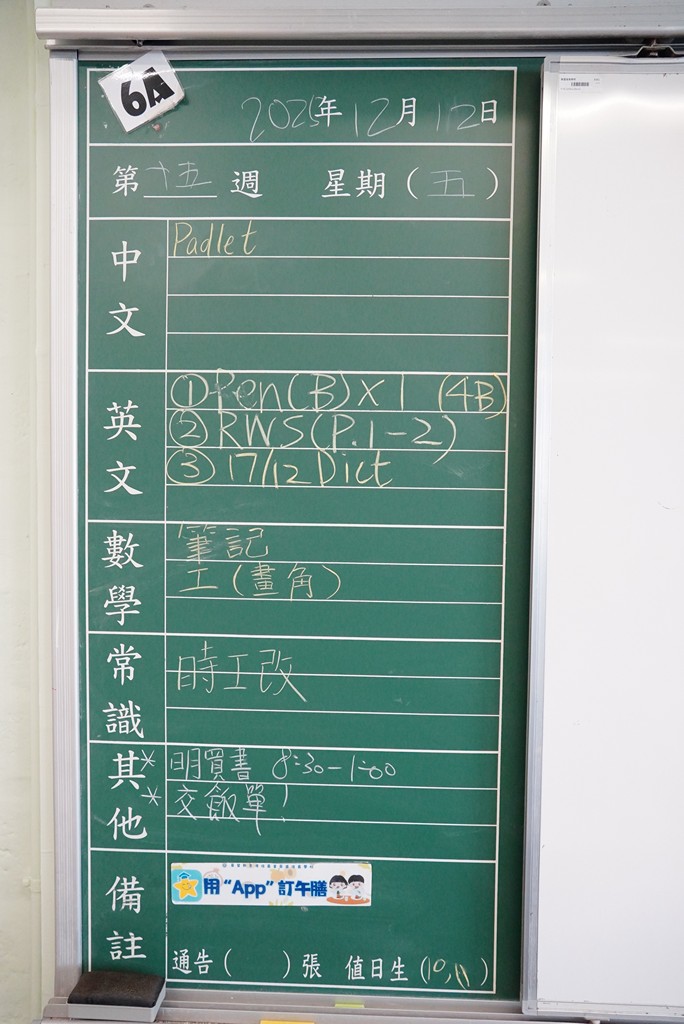 6A
2025年12月12日
第十五週 星期（五）
中文
Padlet
英文
①Pen(B)×1 (4B)
②RWS(P.1-2)
③17/12 Dict
數學
筆記
工（畫角）
常識
時工改
其他
*明買書 8:30-1:00
*交飯單!
備註
用“App”訂午膳
通告（ ）張 值日生（10,11）